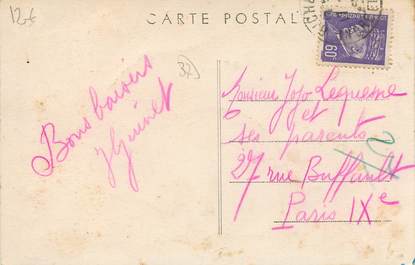 12€
CARTE POSTALE
60
32
Bons baisers
JGuinet
Monsieur Jojo Lequesne
et
ses parents
27 rue Buffault
Paris IXe